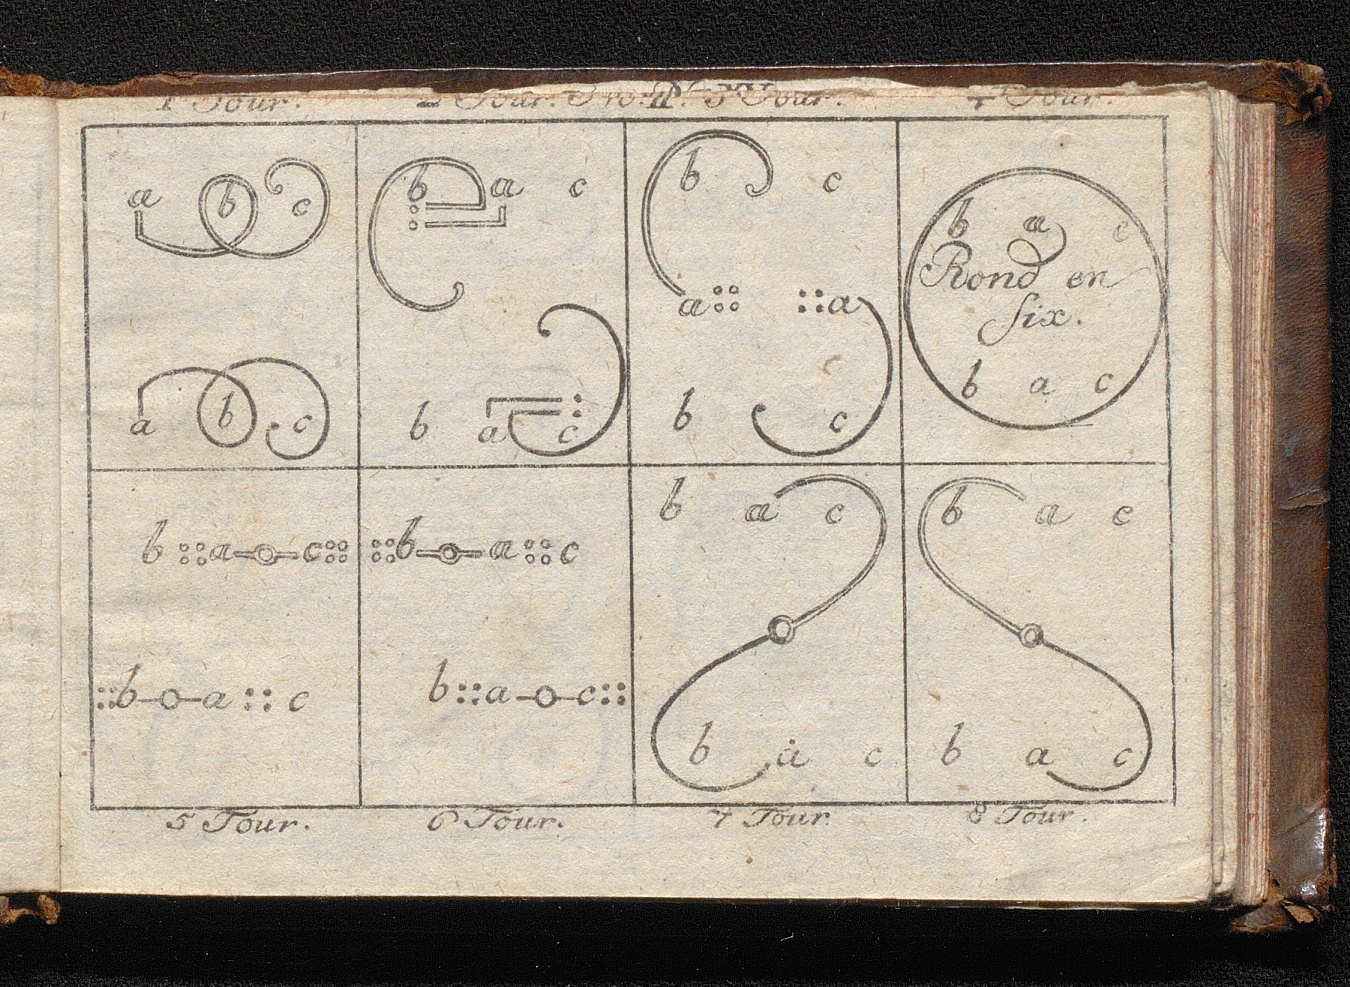 1 Tour.
2 Tour.
3 Tour.
4 Tour.
a b c
a b c
b a c
b a c
b c
a a
b c
b a c
Rond en
Six.
b a c
b a c
b a c
b a c
b a c
b a c
b a c
b a c
b a c
5 Tour.
6 Tour.
7 Tour
8 Tour.